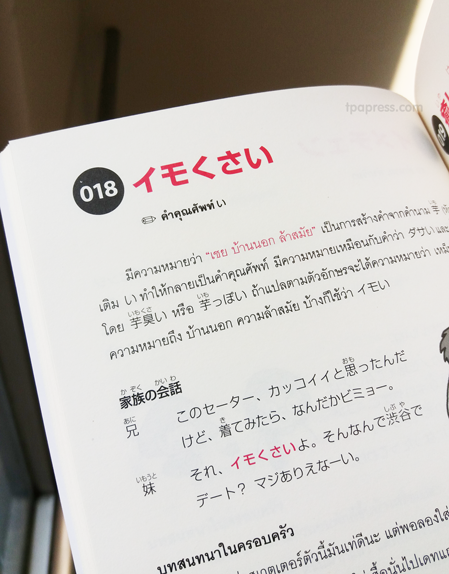 tpapress.com
018 イモくさい
คำคุณศัพท์ い
มีความหมายว่า “เชย บ้านนอก ล้าสมัย” เป็นการสร้างคำจากคำนาม 芋
เติม い ทำให้กลายเป็นคำคุณศัพท์ มีความหมายเหมือนกับคำว่า ダサい และ
โดย 芋臭い หรือ 芋っぽい ถ้าแปลตามตัวอักษรจะได้ความหมายว่า
ความหมายถึง บ้านนอก ความล้าสมัย บ้างก็ใช้ว่า イモい
家族の会話
兄 このセーター、カッコイイと思ったんだ
けど、着てみたら、なんだかビミョー。
妹 それ、イモくさいよ。そんなんで渋谷で
デート? マジありえなーい。
บทสนทนาในครอบครัว
ตอร์ตัวนี้มันเท่ดีนะ แต่พอลองใส่